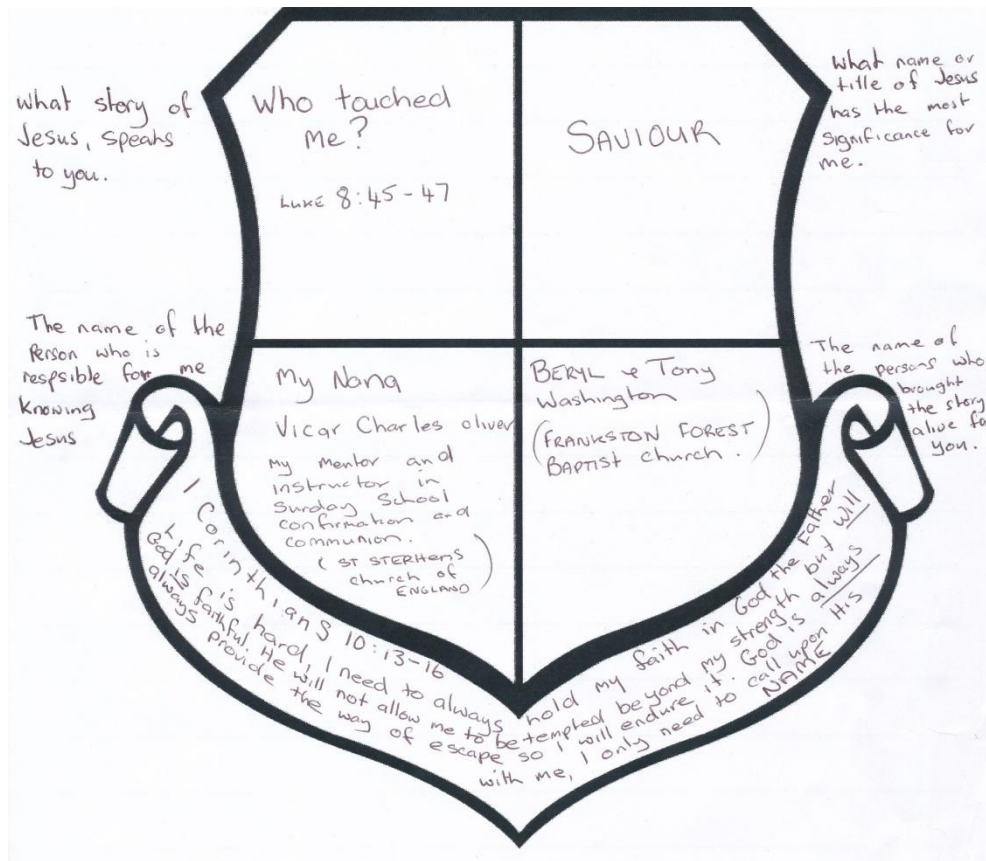 What story of
Jesus, speaks
to you.
Who touched
Me?
Luke 8:45-47
SAVIOUR
What name or
title of Jesus
has the most
significance for
me.
The name of the
Person who is
respsible for me
Knowing
Jesus
My Nana
Vicar Charles oliver
My Mentor and
instructor in
Sunday School
confirmation and
communion.
( ST STERHENS
church of
ENGLAND )
BERYL & Tony
Washington
(FRANKSTON FOREST
BAPTIST church . )
The name of
the persons who
brought
the story
alive for
you.
1 Corinthians 10:13-16
Life is hard, I need to always hold my faith in God the Father
God is faithful. He will not allow me to be tempted beyond my strength but will
always provide the way of escape so I will endure it. God is always
with me, I only need to call upon His
NAME